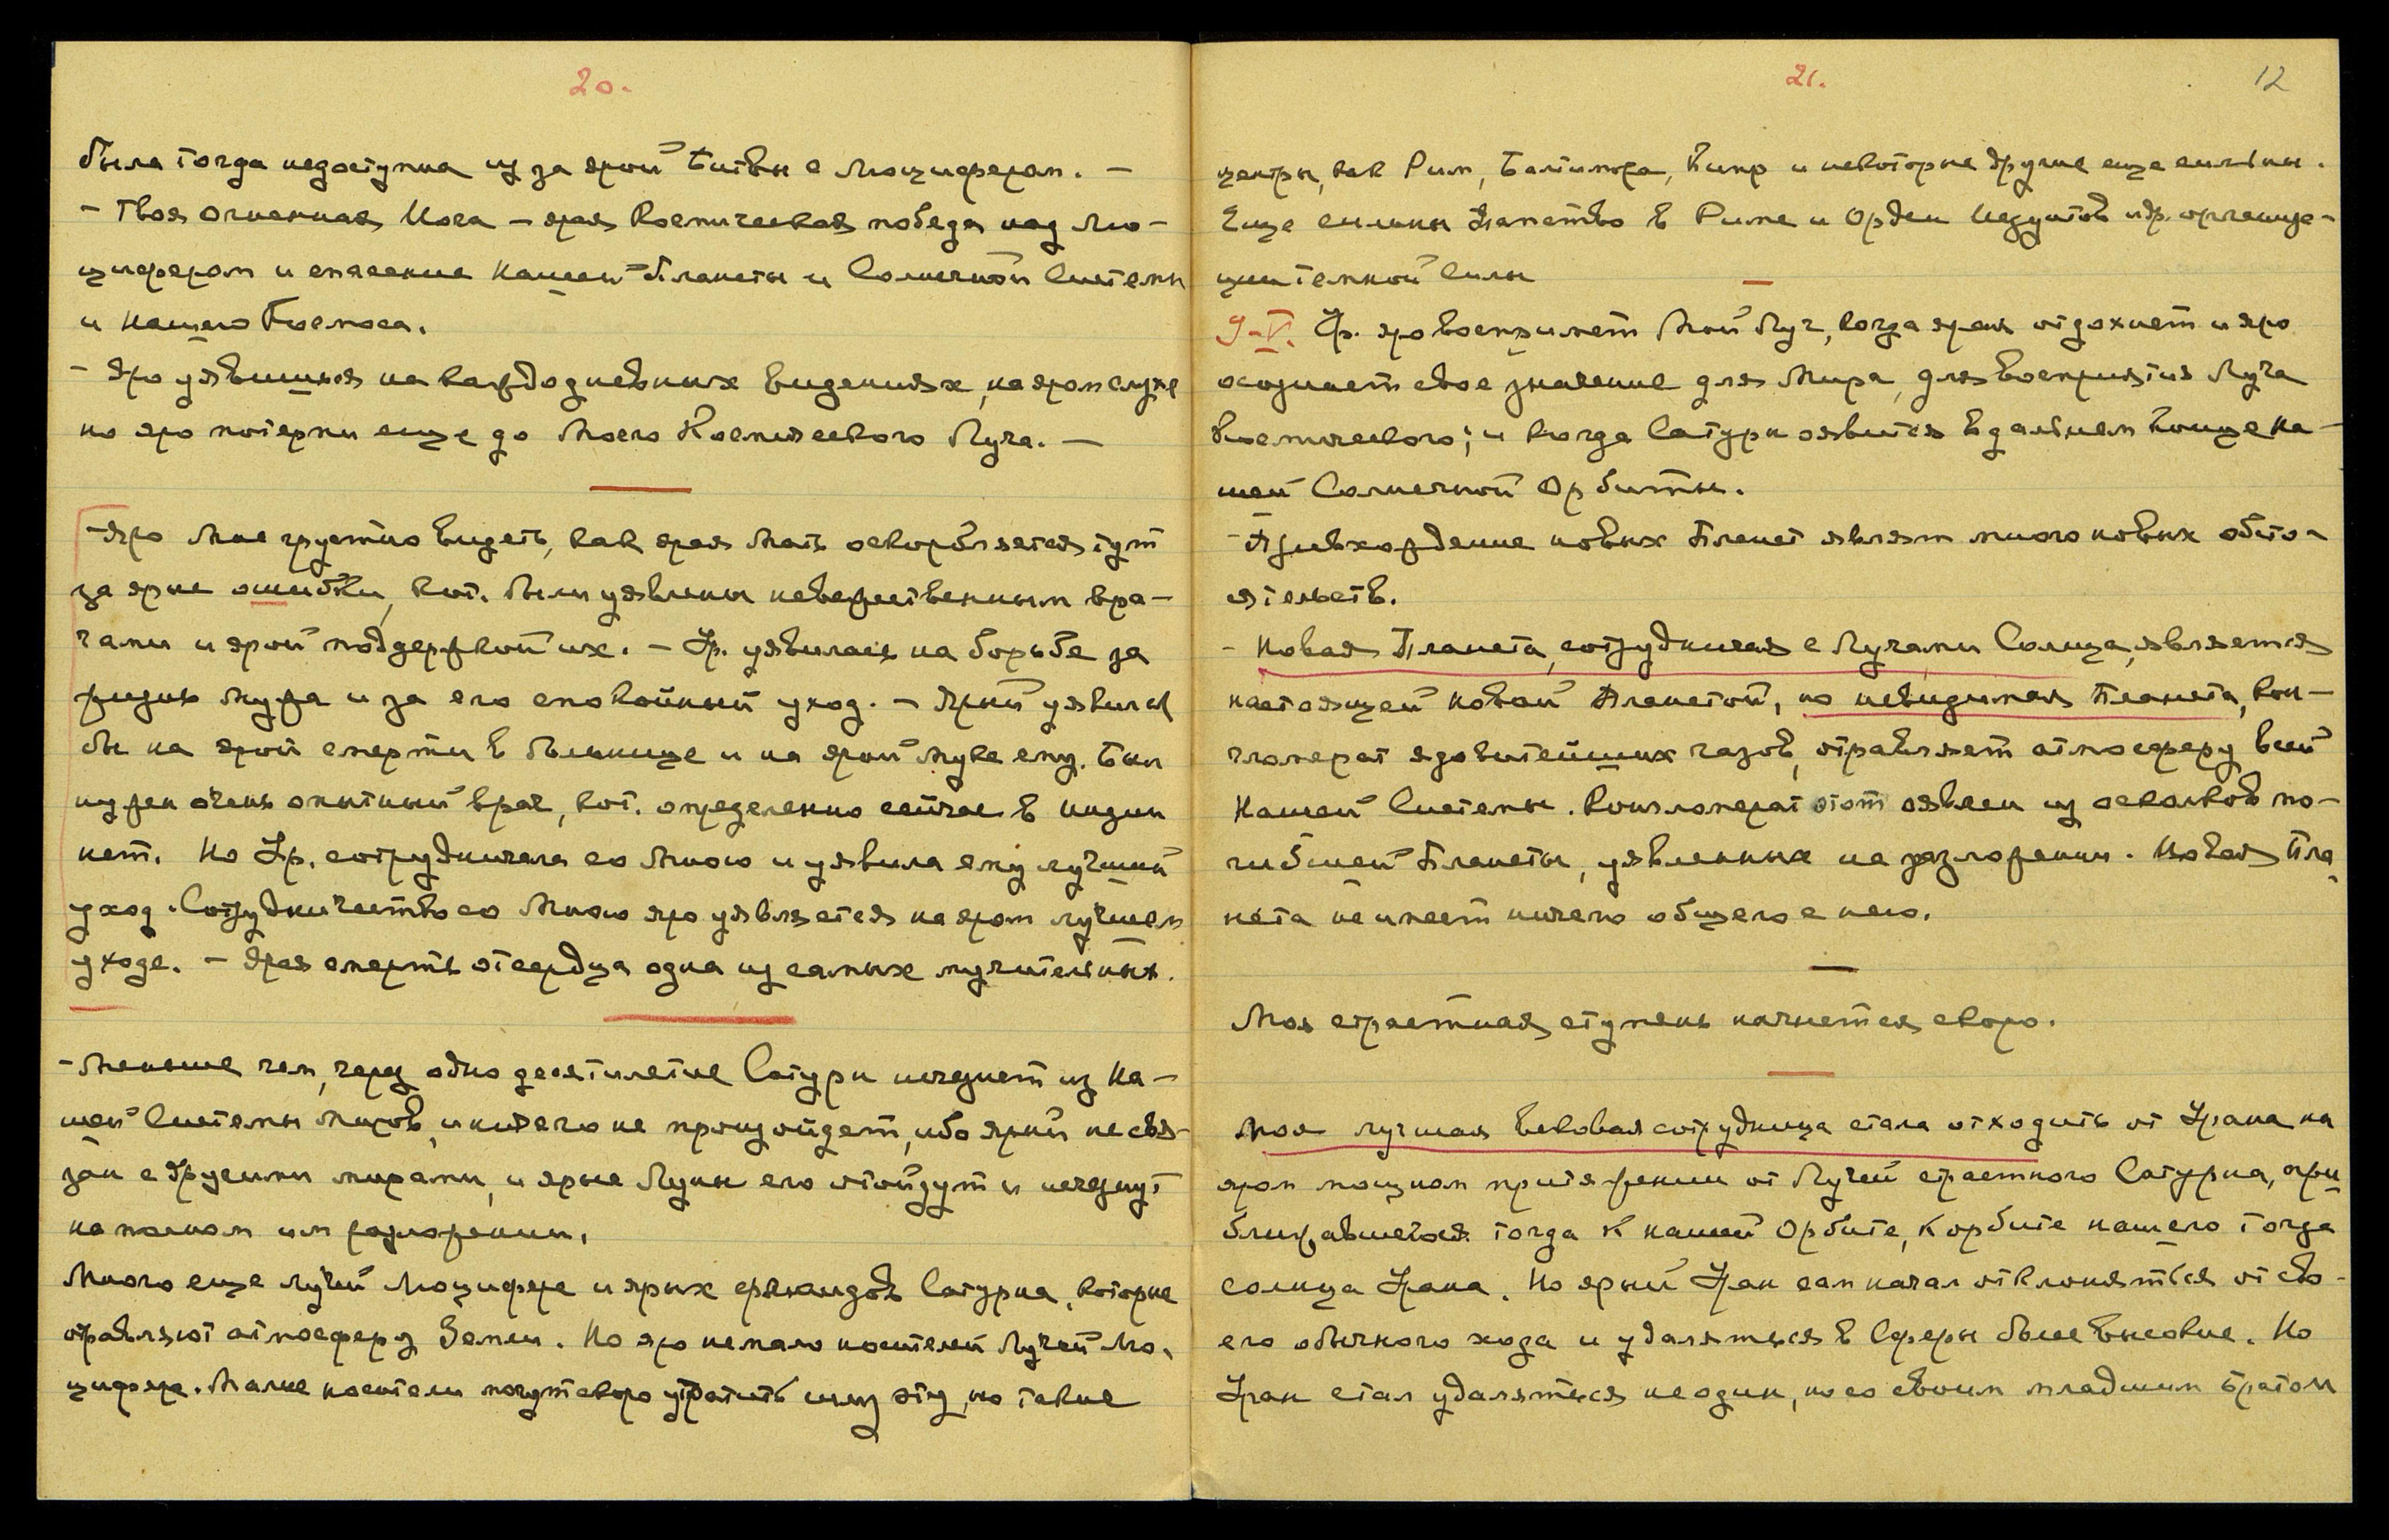 20.
была тогда недоступна из за ярой Битвы с Люцифером. —
– Твоя огненная Йога – ярая Космическая победа над Лю-
цифером и спасение Нашей Планеты и Солнечной Системы
и Нашего Космоса.
– Яро уявишься на каждодневных видениях, на яром слухе
но яро потерпи еще до Моего Космического Луча. —
– Яро Мне грустно видеть, как ярая Мать оскорбляется тут
за ярые ошибки, кот. были уявлены невежественными вра-
чами и ярой поддержкой их. – Ур. уявилась на борьбе за
жизнь мужа и за его спокойный уход. – Ярый уявился
бы на ярой смерти в больнице и на ярой муке ему. Был
нужен очень опытный врач, кот. определенно сейчас в Индии
нет. Но Ур. сотрудничала со Мною и уявила ему лучший
уход. Сотрудничество со Мною яро уявляется на яром лучшем
уходе. – Ярая смерть от сердца одна из самых мучительных.
– Меньше чем, через одно десятилетие Сатурн исчезнет из На-
шей Системы Миров, и ничего не произойдет, ибо ярый не свя-
зан с другими мирами, и ярые Луны его отойдут и исчезнут
на полном им разложении.
Много еще лучей Люцифера и ярых флюидов Сатурна, которые
отравляют атмосферу Земли. Но яро немало носителей Лучей Лю-
цифера. Малые носители могут скоро утратить силу эту, но такие
21.
12
центры, как Рим, Балтимора, Кипр и некоторые другие еще сильны.
Еще сильны Папство в Риме и Орден Иезуитов и др. организа-
ции темной силы
9-V. Ур. яро воспримет Мой Луч, когда ярая отдохнет и яро
осознает свое значение для Мира, для восприятия Луча
Космического; и когда Сатурн оявится в дальнем конце На-
шей Солнечной Орбиты.
– Привхождение новых Планет являет много новых обсто-
ятельств.
– Новая Планета, сотрудничая с Лучами Солнца, является
настоящей новой Планетой, но невидимая Планета, кон-
гломерат ядовитейших газов, отравляет атмосферу всей
Нашей Системы. Конгломерат этот оявлен из осколков по-
гибшей Планеты, уявленных на разложении. Новая Пла-
нета не имеет ничего общего с нею.
Моя страстная ступень начнется скоро.
Моя лучшая вековая сотрудница стала отходить от Урана на
яром мощном притяжении от Лучей страстного Сатурна, при
ближавшегося тогда к нашей Орбите, к орбите нашего тогда
солнца Урана. Но ярый Уран сам начал отклоняться от сво-
его обычного хода и удаляться в Сферы более высокие. Но
Уран стал удаляться не один, но со своим младшим братом